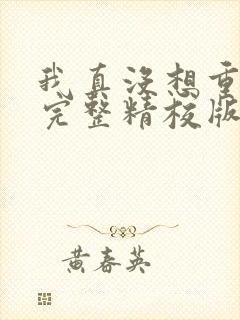 我真没想重
完整精校版
黄春英